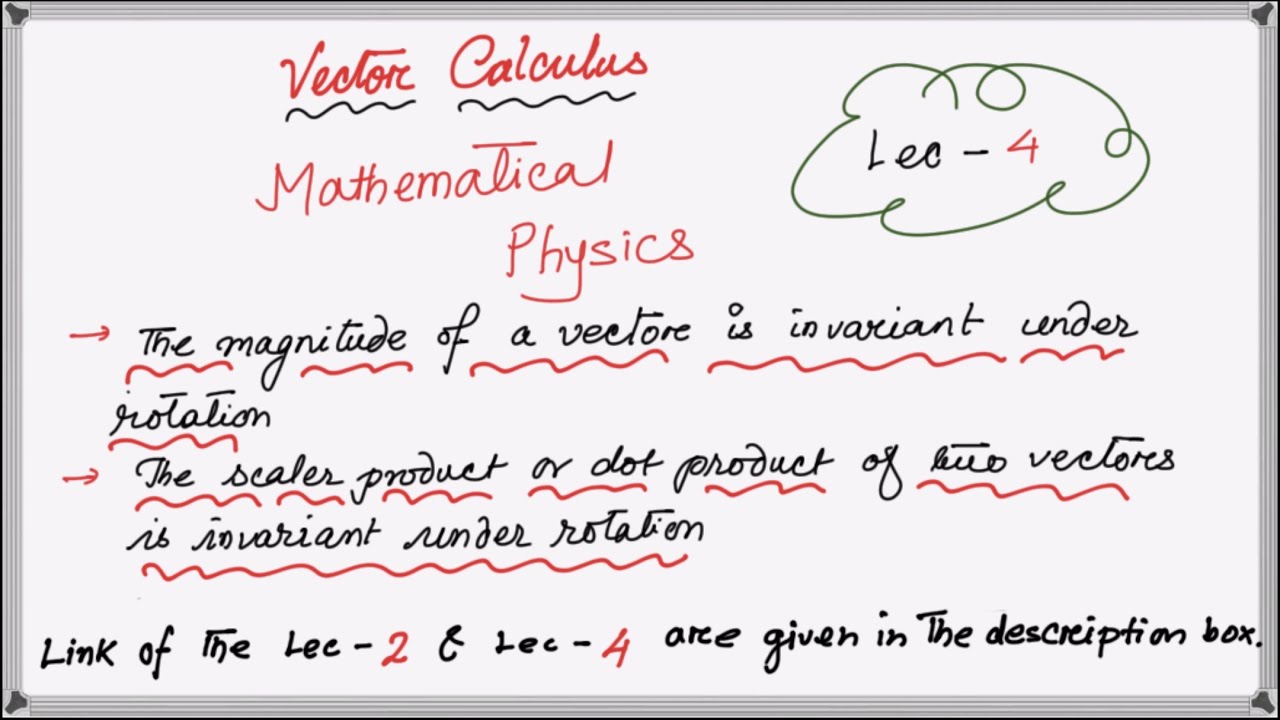 Vector Calculus
Lec - 4
Mathematical
Physics
→ The magnitude of a vectore is invariant under
rotation
→ The scaler product or dot product of two vectores
is invariant under rotation
Link of The Lec - 2 & Lec - 4 arce given in The descreiption box.